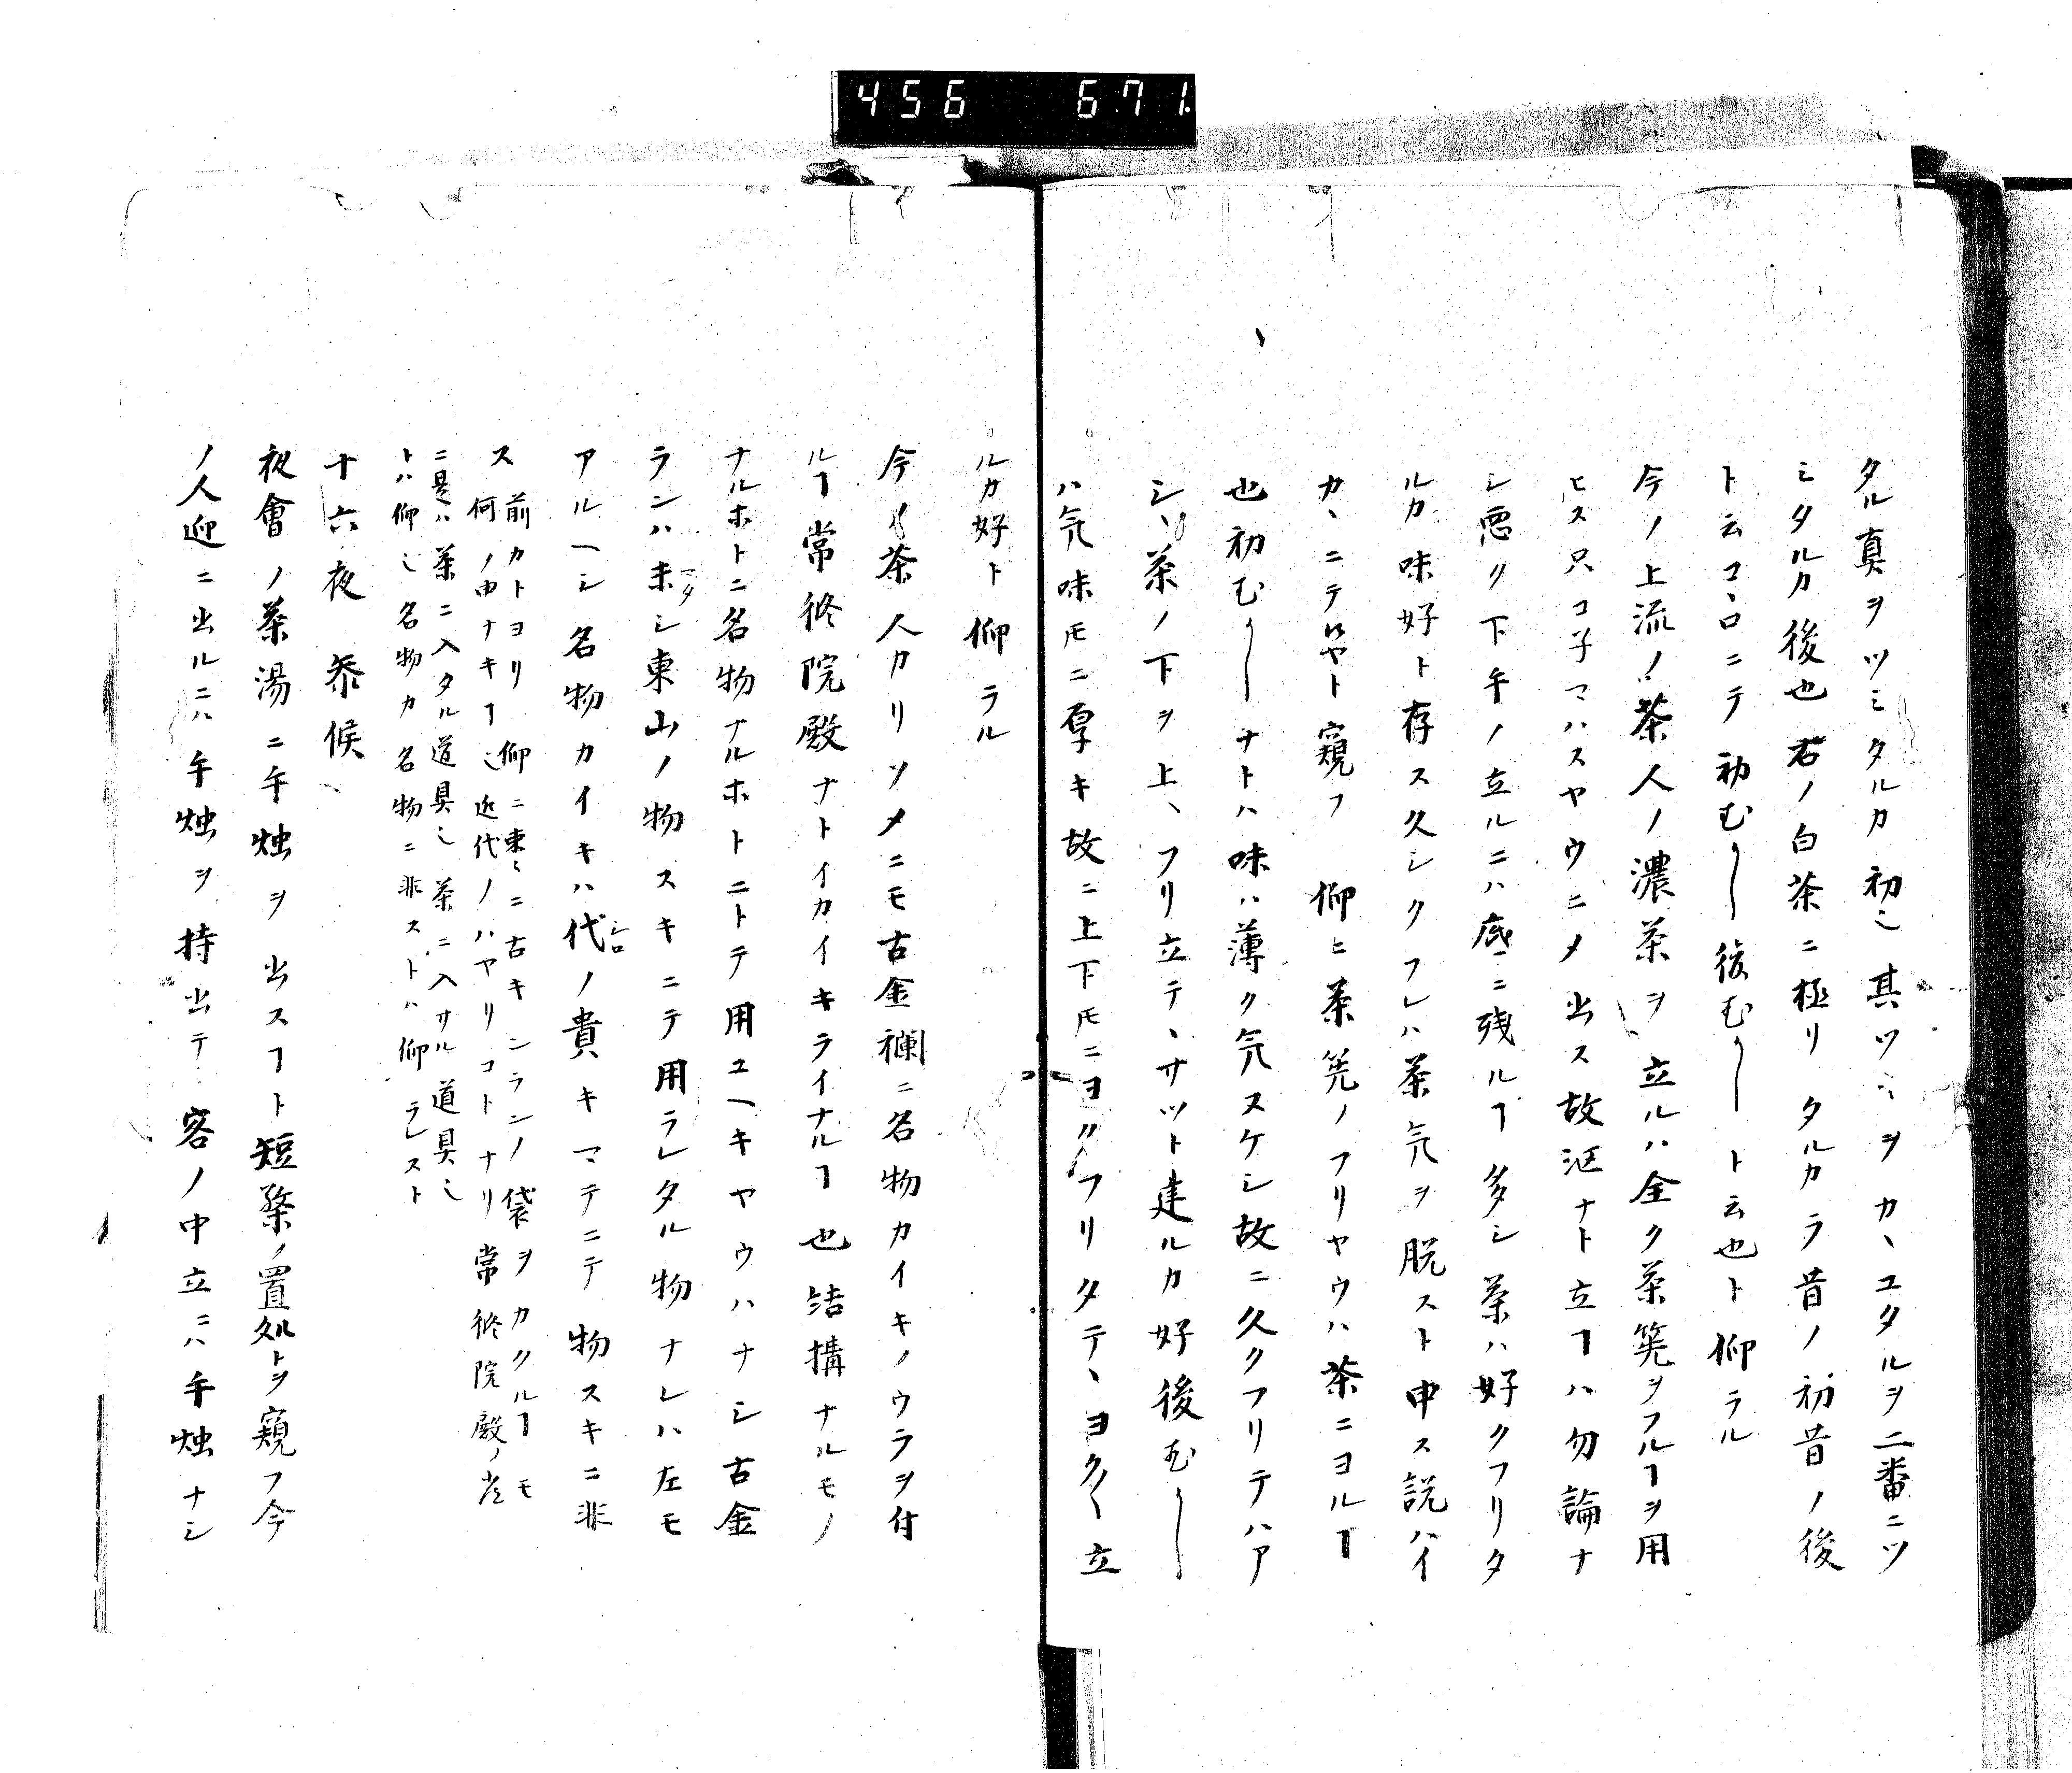 456 671.
タル真ヲツミタルカ初〻其ツミヲカヽユタルヲ二番ニツ
ミタルカ後也右ノ白茶ニ極リタルカラ昔ノ初昔ノ後
ト云コヽロニテ初むかし後むかしト云也ト仰ラル
今ノ上流ノ茶人ノ濃茶ヲ立ルハ全ク茶筅ヲフルヿヲ用
ヒス只コ子マハスヤウニメ出ス故泡ナト立ヿハ勿論ナ
シ悪ク下手ノ立ルニハ底ニ残ルヿ多シ茶ハ好クフリタ
ルカ味好ト存ス久シクフレハ茶気ヲ脱スト申ス説ハイ
カヽニテ候ヤト窺フ 仰ニ茶筅ノフリヤウハ茶ニヨルヿ
也初むかしナトハ味ハ薄ク気スケシ故ニ久クフリテハア
シヽ茶ノ下ヲ上ヽフリ立テヽサツト建ルカ好後むかし
ハ気味𪜈ニ厚キ故ニ上下𪜈ニヨクフリタテヽヨク〳〵立
ルカ好ト仰ラル
今ノ茶人カリソメニモ古金襴ニ名物カイキノウラヲ付
ルヿ常修院殿ナトイカイキライナルヿ也結構ナルモノ
ナルホトニ名物ナルホトニトテ用ユヘキヤウハナシ古金
ランハ未マタシ東山ノ物スキニテ用ラレタル物ナレハ左モ
アルヘシ名物カイキハ代シロノ貴キマテニテ物スキニ非
ス 前カトヨリ仰ニ東〻ニ古キンランノ袋ヲカクルヿモ
何ノ由ナキヿ〻近代ノハヤリコトナリ常修院殿ノ
ニ是ハ茶ニ入タル道具〻茶ニ入サル道具〻
トハ仰〻名物カ名物ニ非ストハ仰ラレスト
十六夜 参候
夜會ノ茶湯ニ手燭ヲ出スヿト短檠ノ置処トヲ窺フ今
ノ人迎ニ出ルニハ手燭ヲ持出テ客ノ中立ニハ手燭ナシ